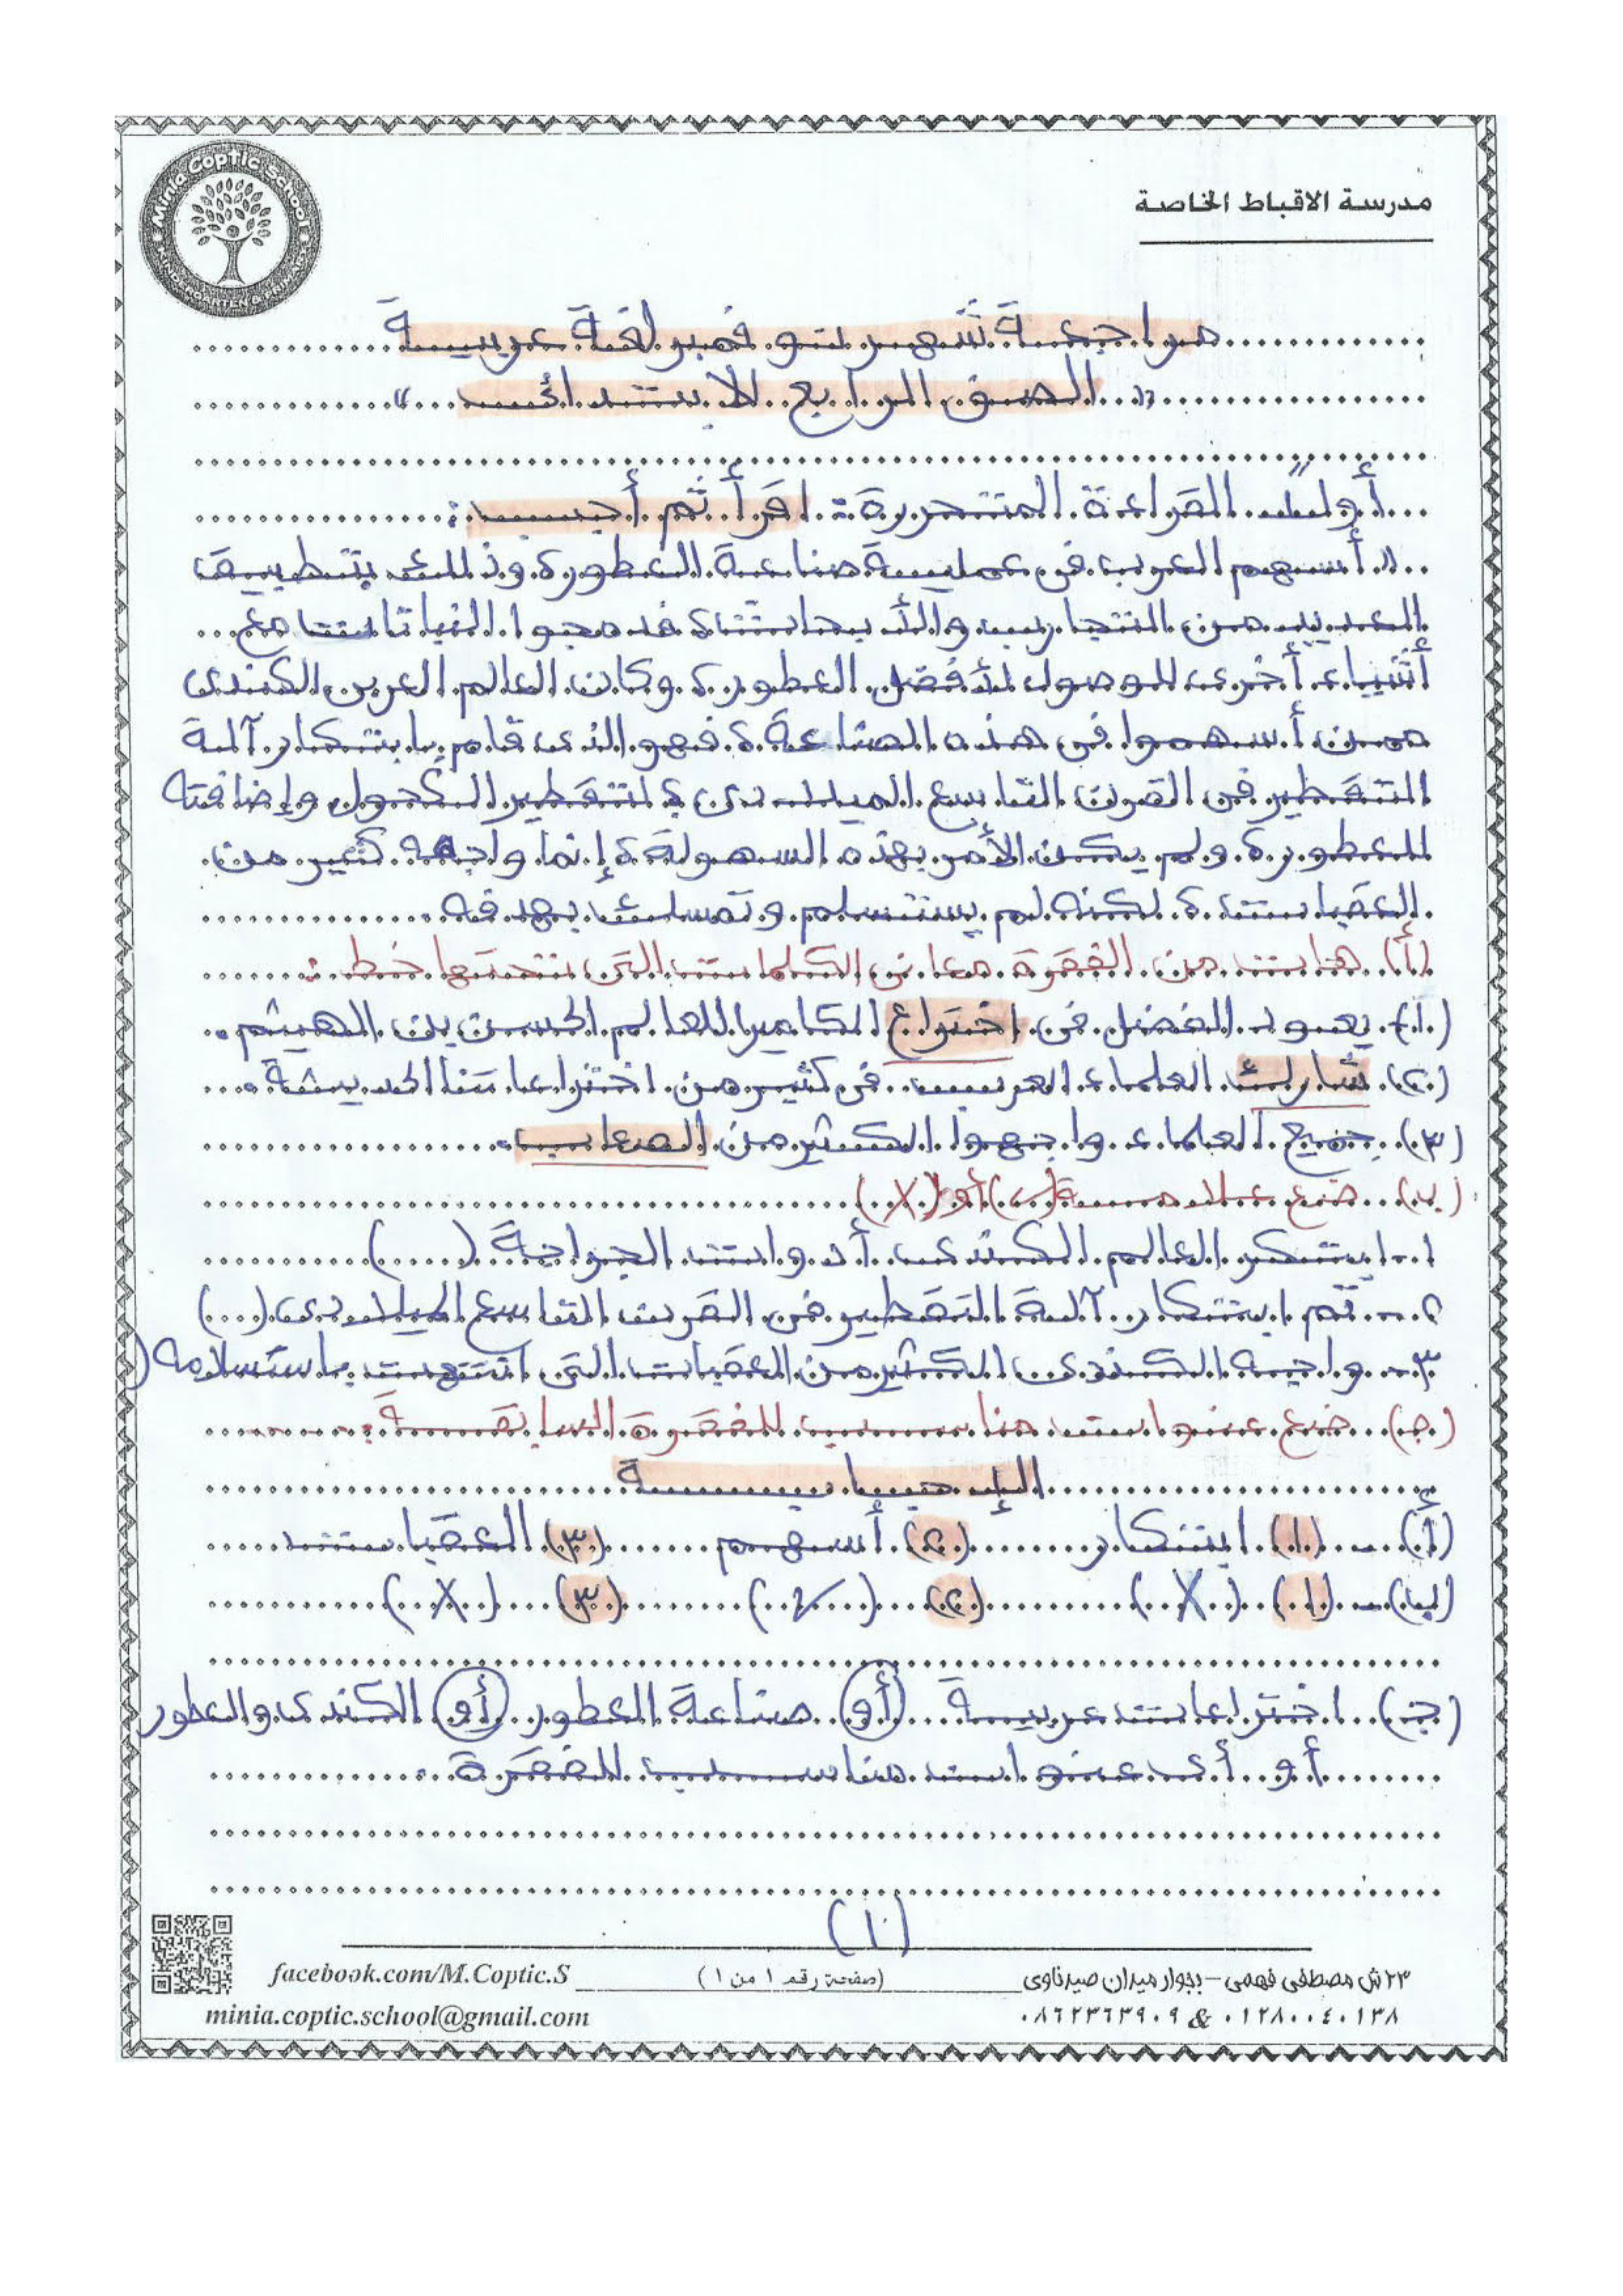 Minia Coptic School
KINDERGARTEN & PRIMARY
مدرسة الاقباط الخاصة
مراجعة شهر نوفمبر لغة عربية
"الصف الرابع الابتدائى"
أولًا: القراءة المتحررة: اقرأ ثم أجب:
" أسهم العرب فى عملية صناعة العطور، وذلك بتطبيق
العديد من التجارب والأبحاث، فدمجوا النباتات مع
أشياء أخرى للوصول لأفضل العطور، وكان العالم العربى الكندى
ممن أسهموا فى هذه الصناعة، فهو الذى قام بابتكار آلة
التقطير فى القرن التاسع الميلادى، لتقطير الكحول وإضافته
للعطور، ولم يكن الأمر بهذه السهولة، إنما واجه كثير من
العقبات، لكنه لم يستسلم وتمسك بهدفه.
(أ) هات من الفقرة معانى الكلمات التى تحتها خط:
(١) يعود الفضل فى اختراع الكاميرا للعالم الحسن بن الهيثم.
(٢) شارك العلماء العرب فى كثير من اختراعاتنا الحديثة.
(٣) جميع العلماء واجهوا الكثير من الصعاب.
(ب) ضع علامة (✓) أو (X)
١- ابتكر العالم الكندى أدوات الجراحة (....)
٢- تم ابتكار آلة التقطير فى القرن التاسع الميلادى (...)
٣- واجه الكندى الكثير من العقبات التى انتهت باستسلامه (
(ج) ضع عنوانًا مناسب للفقرة السابقة:
الإجابة
(أ) - (١) ابتكار (٢) أسهم (٣) العقبات
(ب) - (١) (X) (٢) (✓) (٣) (X)
(ج) اختراعات عربية أو صناعة العطور أو الكندى والعطور
أو أى عنوان مناسب للفقرة.
(١)
٢٣ ش مصطفى فهمى - بجوار ميدان صيدناوى
(صفحة رقم ١ من ١)
facebook.com/M.Coptic.S
٠٨٦٢٣٦٣٩٠٩ & ٠١٢٨٠٠٤٠١٣٨
minia.coptic.school@gmail.com